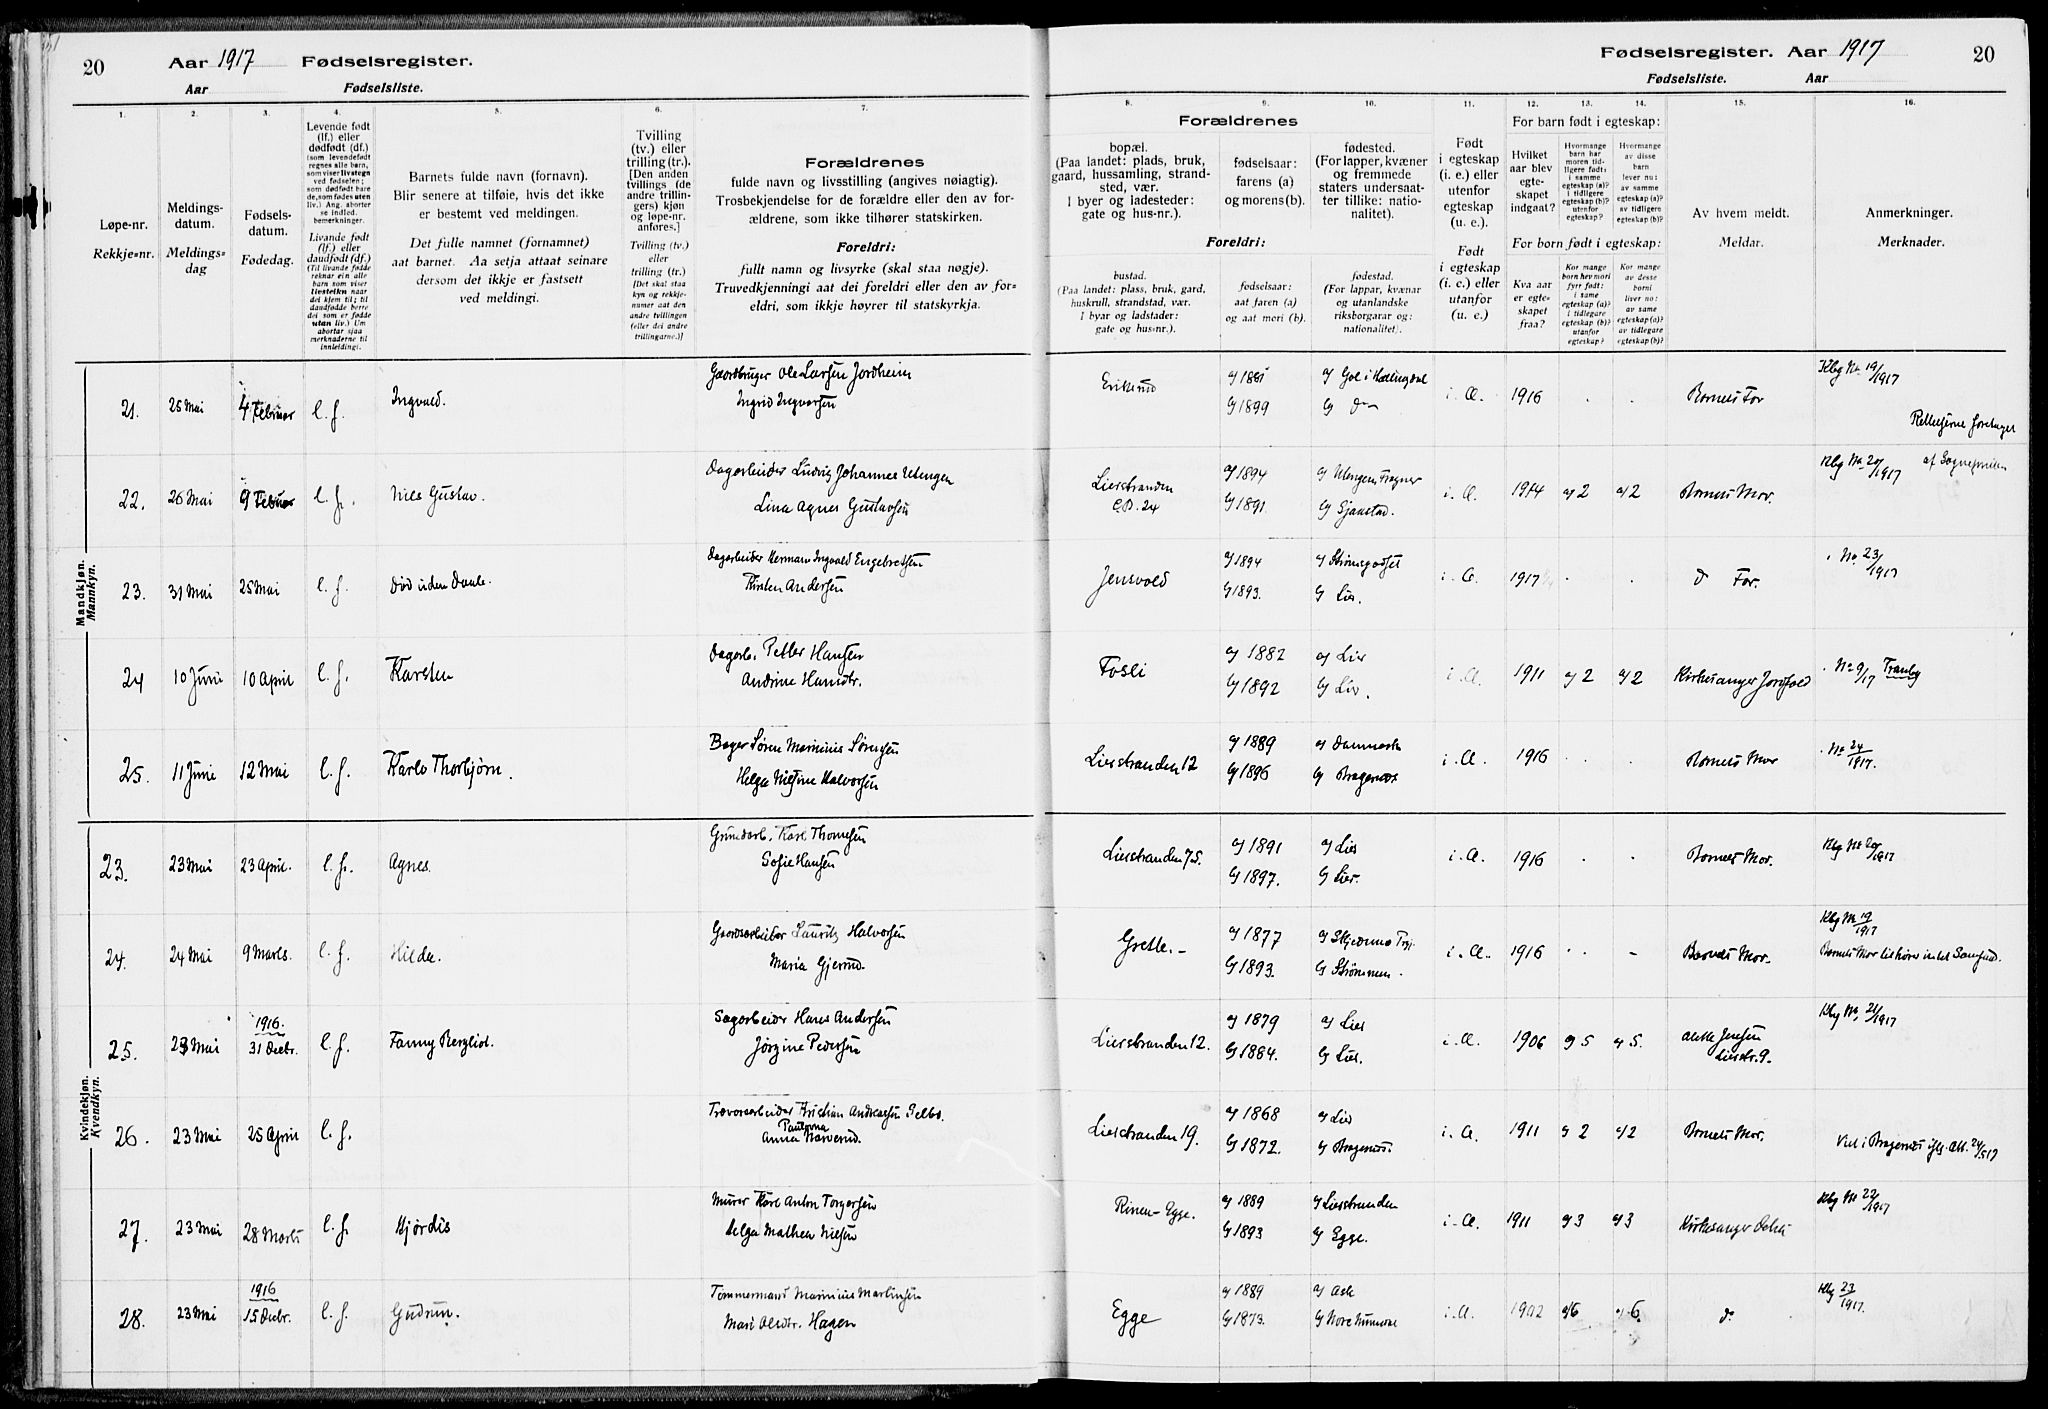 20 Aar 1917 Fødselsregister.
Aar Fødselsliste.
1. 2. 3. 4. 5. 6. 7.
Løpe-nr.
Rekkje-nr.
Meldings-
datum.
Meldings-
dag
Fødsels-
datum.
Fødedag.
Levende født
(lf.) eller
dødfødt (df.)
(som levendefødt
regnes alle barn,
som viser livstegn
ved fødselen;
som dødfødt bare
de, som fødes uten
liv.) Ang. aborter
se indled.
bemerkninger.
Livande født
(lf.) eller
daudfødt (df.)
(Til livande fødde
reknar ein alle
barn som viser
livsteikn naar
dei kjem til; til
daudfødde berre
dei som er fødde
utan liv.) Um
abortar sjaa
merknaderne til
innleidingi.
Barnets fulde navn (fornavn).
Blir senere at tilføie, hvis det ikke
er bestemt ved meldingen.
Det fulle namnet (fornamnet)
aat barnet. Aa setja attaat seinare
dersom det ikkje er fastsett
ved meldingi.
Tvilling
(tv.) eller
trilling (tr.).
[Den anden
tvillings (de
andre trillin-
gers) kjøn
og løpe-nr.
anføres.]
Tvilling (tv.)
eller
trilling (tr.)
[Det skal staa
kyn og rekkje-
numer aat den
andre tvillingen
(eller dei andre
trillingarne.)]
Forældrenes
fulde navn og livsstilling (angives nøiagtig).
Trosbekjendelse for de forældre eller den av for-
ældrene, som ikke tilhører statskirken.
Foreldri:
fullt namn og livsyrke (skal staa nøgje).
Truvedkjenningi aat dei foreldri eller den av for-
eldri, som ikkje høyrer til statskyrkja.
Mandkjøn.
Mannkyn.
21. 25 Mai 4 Februar l. f. Ingvald. Gaardbruger Ole Larsen Jordheim
Ingrid Ingvarsen
22. 26 Mai 9 Februar l. f. Niels Gustav. Dagarbeider Ludvig Johannes Utengen
Lina Agnes Gustavsen
23. 31 Mai 25 Mai l. f. Død uden Daab. Dagarbeider Herman Ingvald Engebretsen
Kirsten Andersen
24 10 Juni 10 April l. f. Karsten Dagarb. Petter Hansen
Andrine Hansdtr.
25. 11 Juni 12 Mai l. f. Karlo Thorbjørn. Bager Søren Marinius Sørensen
Helga Nilsine Halvorsen
Kvindekjøn.
Kvendkyn.
23. 23 Mai 23 April. l. f. Agnes. Grundarb. Karl Thomesen
Sofie Hansen
24. 24 Mai 9 Marts. l. f. Hilda. Gaardsarbeider Lauritz Halvorsen
Maria Gjerud.
25. 23 Mai 1916. 31 Decbr. l. f. Fanny Bergliot. Sagarbeider Hans Andersen
Jørgine Pedersen
26. 23 Mai 25 April l. f. Trævarearbeider Kristian Andreasen Selbo.
Anna
27. 23 Mai 28 Marts l. f. Hjørdis Murer Karl Anton Torgersen
Helga Mathea Nilsen
28. 23 Mai 1916 15 Decbr. l. f. Gudrun. Tømmermand Marinius Martinsen
Mari Olsdtr. Hagen
Fødselsregister. Aar 1917 20
Fødselsliste. Aar
8. 9. 10. 11. 12. 13. 14. 15. 16.
Forældrenes
bopæl.
(Paa landet: plads, bruk,
gaard, hussamling, strand-
sted, vær.
I byer og ladesteder:
gate og hus-nr.).
fødselsaar:
farens (a)
og morens (b).
fødested.
(For lapper, kvæner
og fremmede
staters undersaat-
ter tillike: natio-
nalitet).
Foreldri:
bustad.
(Paa landet: plass, bruk, gard,
huskrull, strandstad, vær.
I byar og ladstader:
gate og hus-nr.).
fødselsaar:
aat faren (a)
og aat mori (b).
fødestad.
(For lappar, kvænar
og utanlandske
riksborgarar og:
nationalitet).
Født
i egteskap
(i. e.) eller
utenfor
egteskap
(u. e.).
Født
i egteskap
(i. e.) eller
utanfor
(u. e.)
For barn født i egteskap:
Hvilket
aar blev
egte-
skapet
indgaat?
Hvormange
barn har
moren tid-
ligere født:
i samme
egteskap (a)?
i tidligere
egteskap (b)?
utenfor
egteskap?
Hvormange
av disse
barn
lever nu:
av samme
egteskap (a)?
av tidligere
egteskap (b)?
For born født i egteskap:
Kva aar
er egte-
skapet
fraa?
Kor mange
born hev mori
fyrr født:
i same
egteskap (a)?
i tidlegare
egteskap (b)?
utanfor
egteskap?
Kor mange
av desse
borni
liver no:
av same
egteskap (a)?
av tidlegare
egteskap (b)?
Av hvem meldt.
Meldar.
Anmerkninger.
Merknader.
Eriksrud a) 1881 a) Gol i Hallingdal i. Æ. 1916 . . Barnets Far Kbg No. 19/1917
b) 1899 b) do
Rettelserne foretaget
af Sognepresten
Lierstranden a) 1894 i. Æ. 1914 a) 2 a) 2 Barnets Mor. Kbg No 20/1917
24 b) 1891 b) Sjaastad.
Jensvold a) 1894 a) Strømsgodset i. Æ. 1917 . . do Far. No 23/1917
b) 1893. b) Lier.
Fosli a) 1882 a) Lier i. Æ. 1911 a) 2 a) 2 Kirkesanger No 9/17 Tranby
b) 1892 b) Lier.
Lierstranden 12 a) 1889 a) Danmark i. Æ. 1916 . . Barnets Mor No 24/1917.
b) 1896 b) Bragernæs
Lierstranden 75. a) 1891 a) Lier i. Æ. 1916 . . Barnets Mor. Kbg No 20/1917
b) 1897. b) Lier.
Grette. a) 1877 i. Æ. 1916 . . – Barnets Mor. Kbg No 19/1917
b) 1893. b) Strømmen. Barnets Mor tilhører intet Samfund.
Lierstranden 12. a) 1879 a) Lier i. Æ. 1906 a) 5 a) 5. Jensen Kbg No. 21/1917
b) 1884. b) Lier. Lierstr. 9.
Lierstranden 19. a) 1868 a) Lier i. Æ. 1911 a) 2 a) 2 Barnets Mor. Viet i Bragernes ifg. Att. 24/5 17
b) 1872. b) Bragernes.
Rinen - Egge. a) 1889 a) Lierstranden i. Æ. 1911 a) 3 a) 3 Kirkesanger Kbg No 22/1917
b) 1893 b) Egge.
Egge a) 1889 a) Ask i. Æ. 1902 a) 6 a) 6. do Kbg 23/1917.
b) 1873. b) Nore Numedal